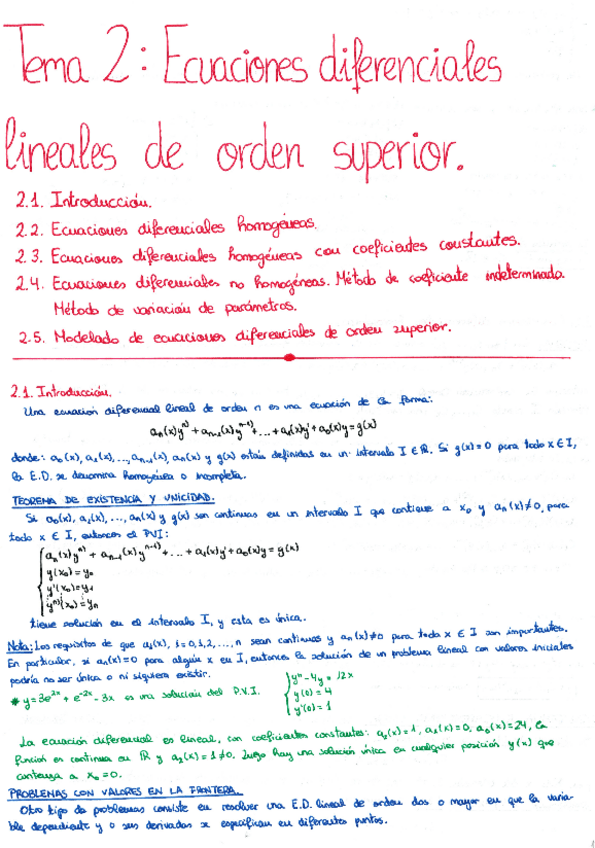 Tema 2: Ecuaciones diferenciales
lineales de orden superior.
2.1. Introducción.
2.2. Ecuaciones diferenciales homogéneas.
2.3. Ecuaciones diferenciales homogéneas con coeficientes constantes.
2.4. Ecuaciones diferenciales no homogéneas. Método de coeficiente indeterminado.
Método de variación de parámetros.
2.5. Modelado de ecuaciones diferenciales de orden superior.
2.1. Introducción.
Una ecuación diferencial lineal de orden n es una ecuación de la forma:
aₙ(x)yⁿ⁾ + aₙ₋₁(x)yⁿ⁻¹⁾ + ... + a₁(x)y' + a₀(x)y = g(x)
donde: a₀(x), a₁(x), ..., aₙ₋₁(x), aₙ(x) y g(x) están definidas en un intervalo I ∈ ℝ. Si g(x)=0 para todo x ∈ I,
la E.D. se denomina homogénea o incompleta.
TEOREMA DE EXISTENCIA Y UNICIDAD.
Si a₀(x), a₁(x), ..., aₙ(x) y g(x) son continuas en un intervalo I que contiene a x₀ y aₙ(x)≠0, para
todo x ∈ I, entonces el PVI:
aₙ(x)yⁿ⁾ + aₙ₋₁(x)yⁿ⁻¹⁾ + ... + a₁(x)y' + a₀(x)y = g(x)
y(x₀)=y₀
y'(x₀)=y₁
yⁿ⁾(x₀)=yₙ
tiene solución en el intervalo I, y esta es única.
Nota: Los requisitos de que aᵢ(x), i=0,1,2,...,n sean continuas y aₙ(x)≠0 para todo x ∈ I son importantes.
En particular, si aₙ(x)=0 para algún x en I, entonces la solución de un problema lineal con valores iniciales
podría no ser única o ni siquiera existir.
* y=3e²ˣ + e⁻²ˣ - 3x es una solución del P.V.I.
y''-4y = 12x
y(0)=4
y'(0)=1
La ecuación diferencial es lineal, con coeficientes constantes: a₂(x)=1, a₁(x)=0, a₀(x)=24, la
función es continua en ℝ y a₂(x)=1≠0. Luego hay una solución única en cualquier posición y(x) que
contenga a x₀=0.
PROBLEMAS CON VALORES EN LA FRONTERA.
Otro tipo de problemas consiste en resolver una E.D. lineal de orden dos o mayor en que la varia-
ble dependiente y o sus derivadas se especifican en diferentes puntos.
1